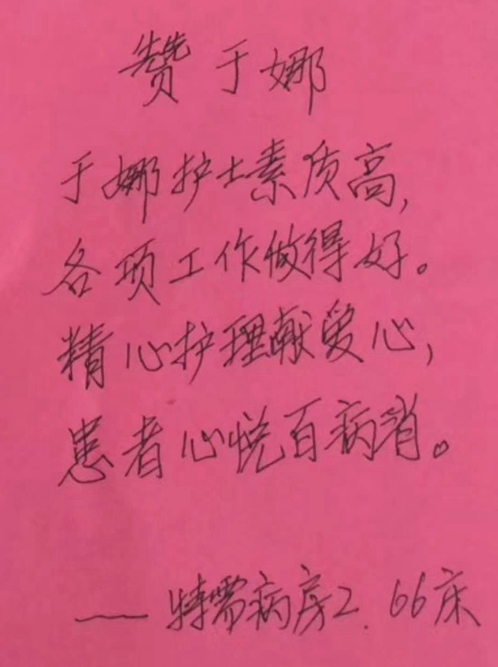 赞于娜
于娜护士素质高,
各项工作做得好。
精心护理献爱心,
患者心悦百病消。
——特需病房2.66床